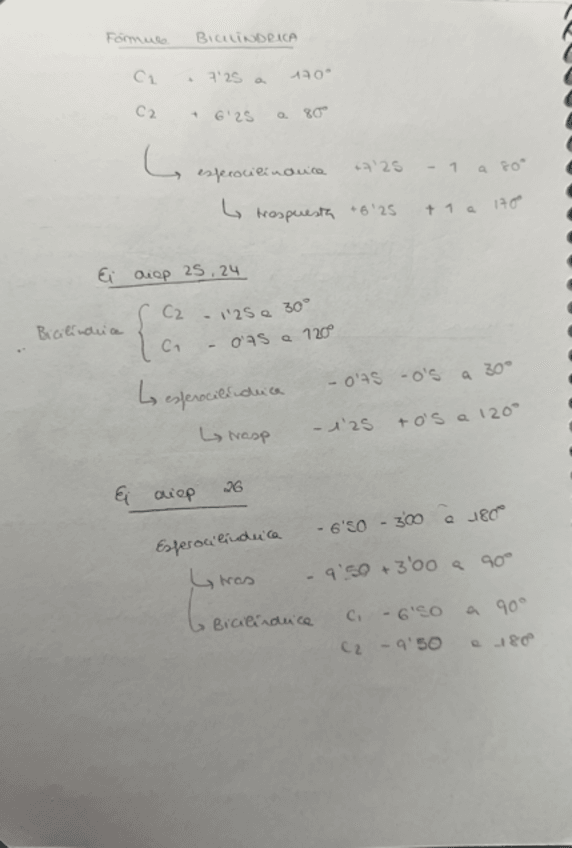 Fórmula BICILÍNDRICA
C1 + 7'25 a 170°
C2 + 6'25 a 80°
↳ esferocilíndrica +7'25 - 1 a 80°
↳ traspuesta +6'25 + 1 a 170°
Ej diap 25, 24
C2 - 1'25 a 30°
Bicilíndrica
C1 - 0'75 a 120°
↳ esferocilíndrica - 0'75 - 0'5 a 30°
↳ trasp - 1'25 + 0'5 a 120°
Ej diap 26
Esferocilíndrica - 6'50 - 3'00 a 180°
↳ tras - 9'50 + 3'00 a 90°
↳ Bicilíndrica C1 - 6'50 a 90°
C2 - 9'50 a 180°